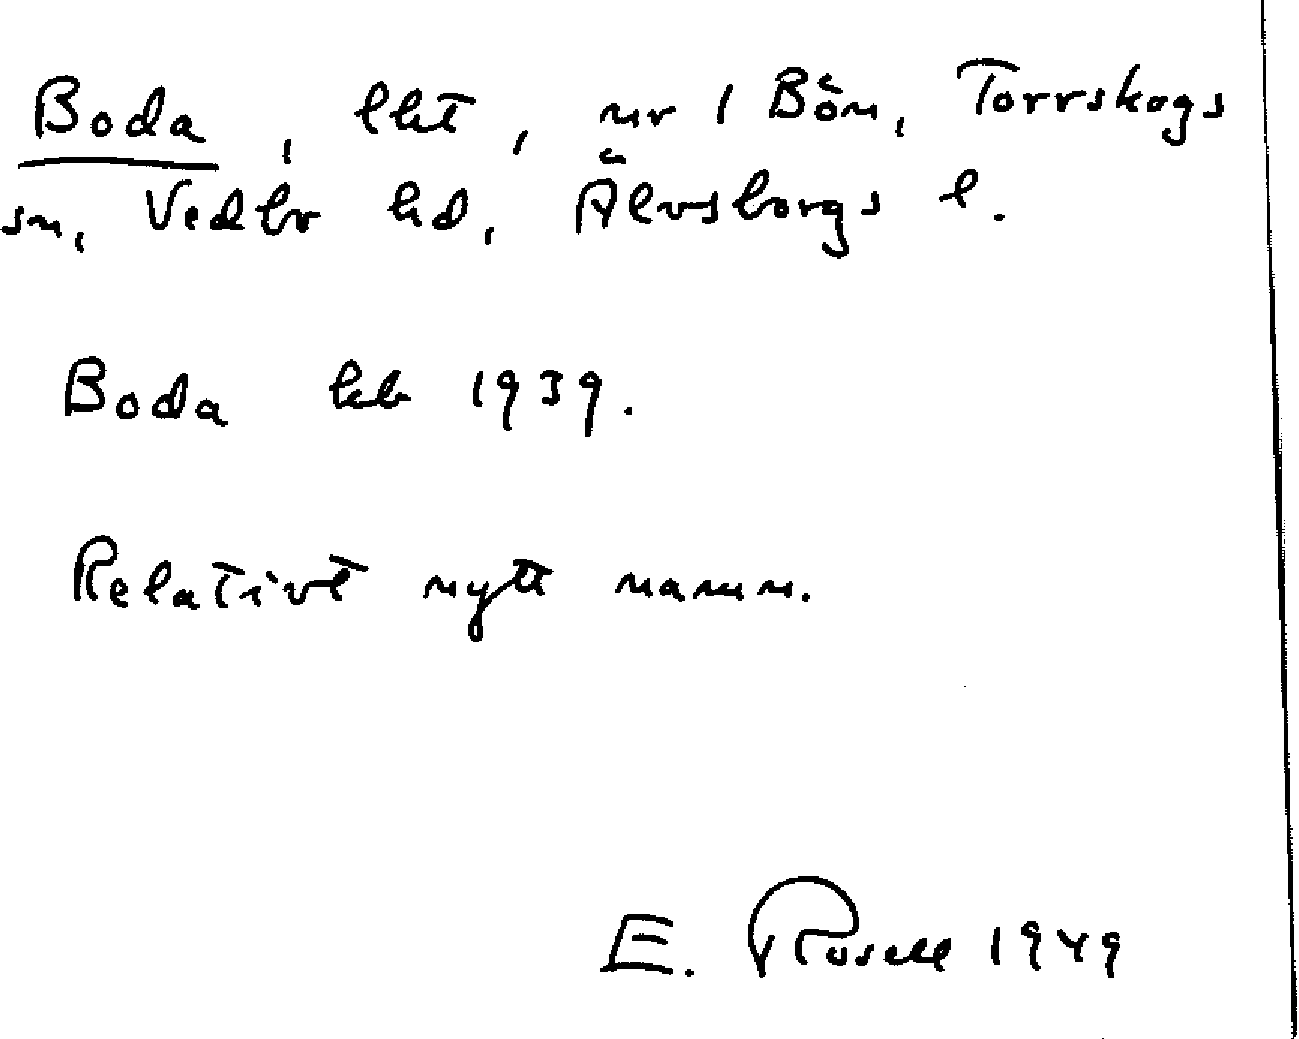 Boda, lht, nr 1 Bön, Torrskogs
sn, Vedbo hd, Älvsborgs l.
Boda kb 1939.
Relativt nytt namn.
E. Rosell 1949